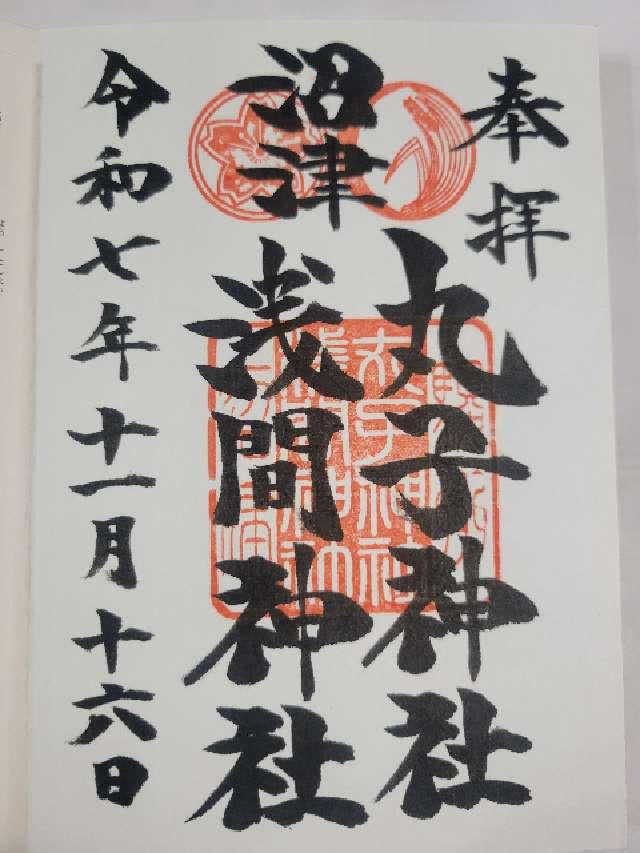 奉拝
沼津
丸子神社
浅間神社
令和七年十一月十六日